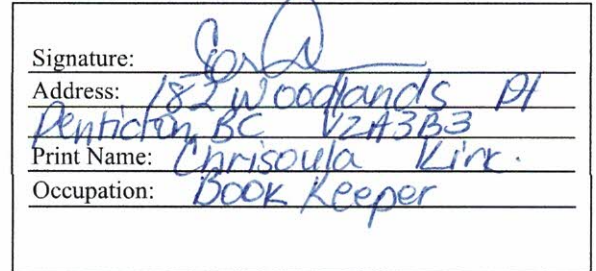 Signature:
Address: 182 Woodlands Pl
Penticton BC V2A3B3
Print Name: Chrisoula
Occupation: Book Keeper